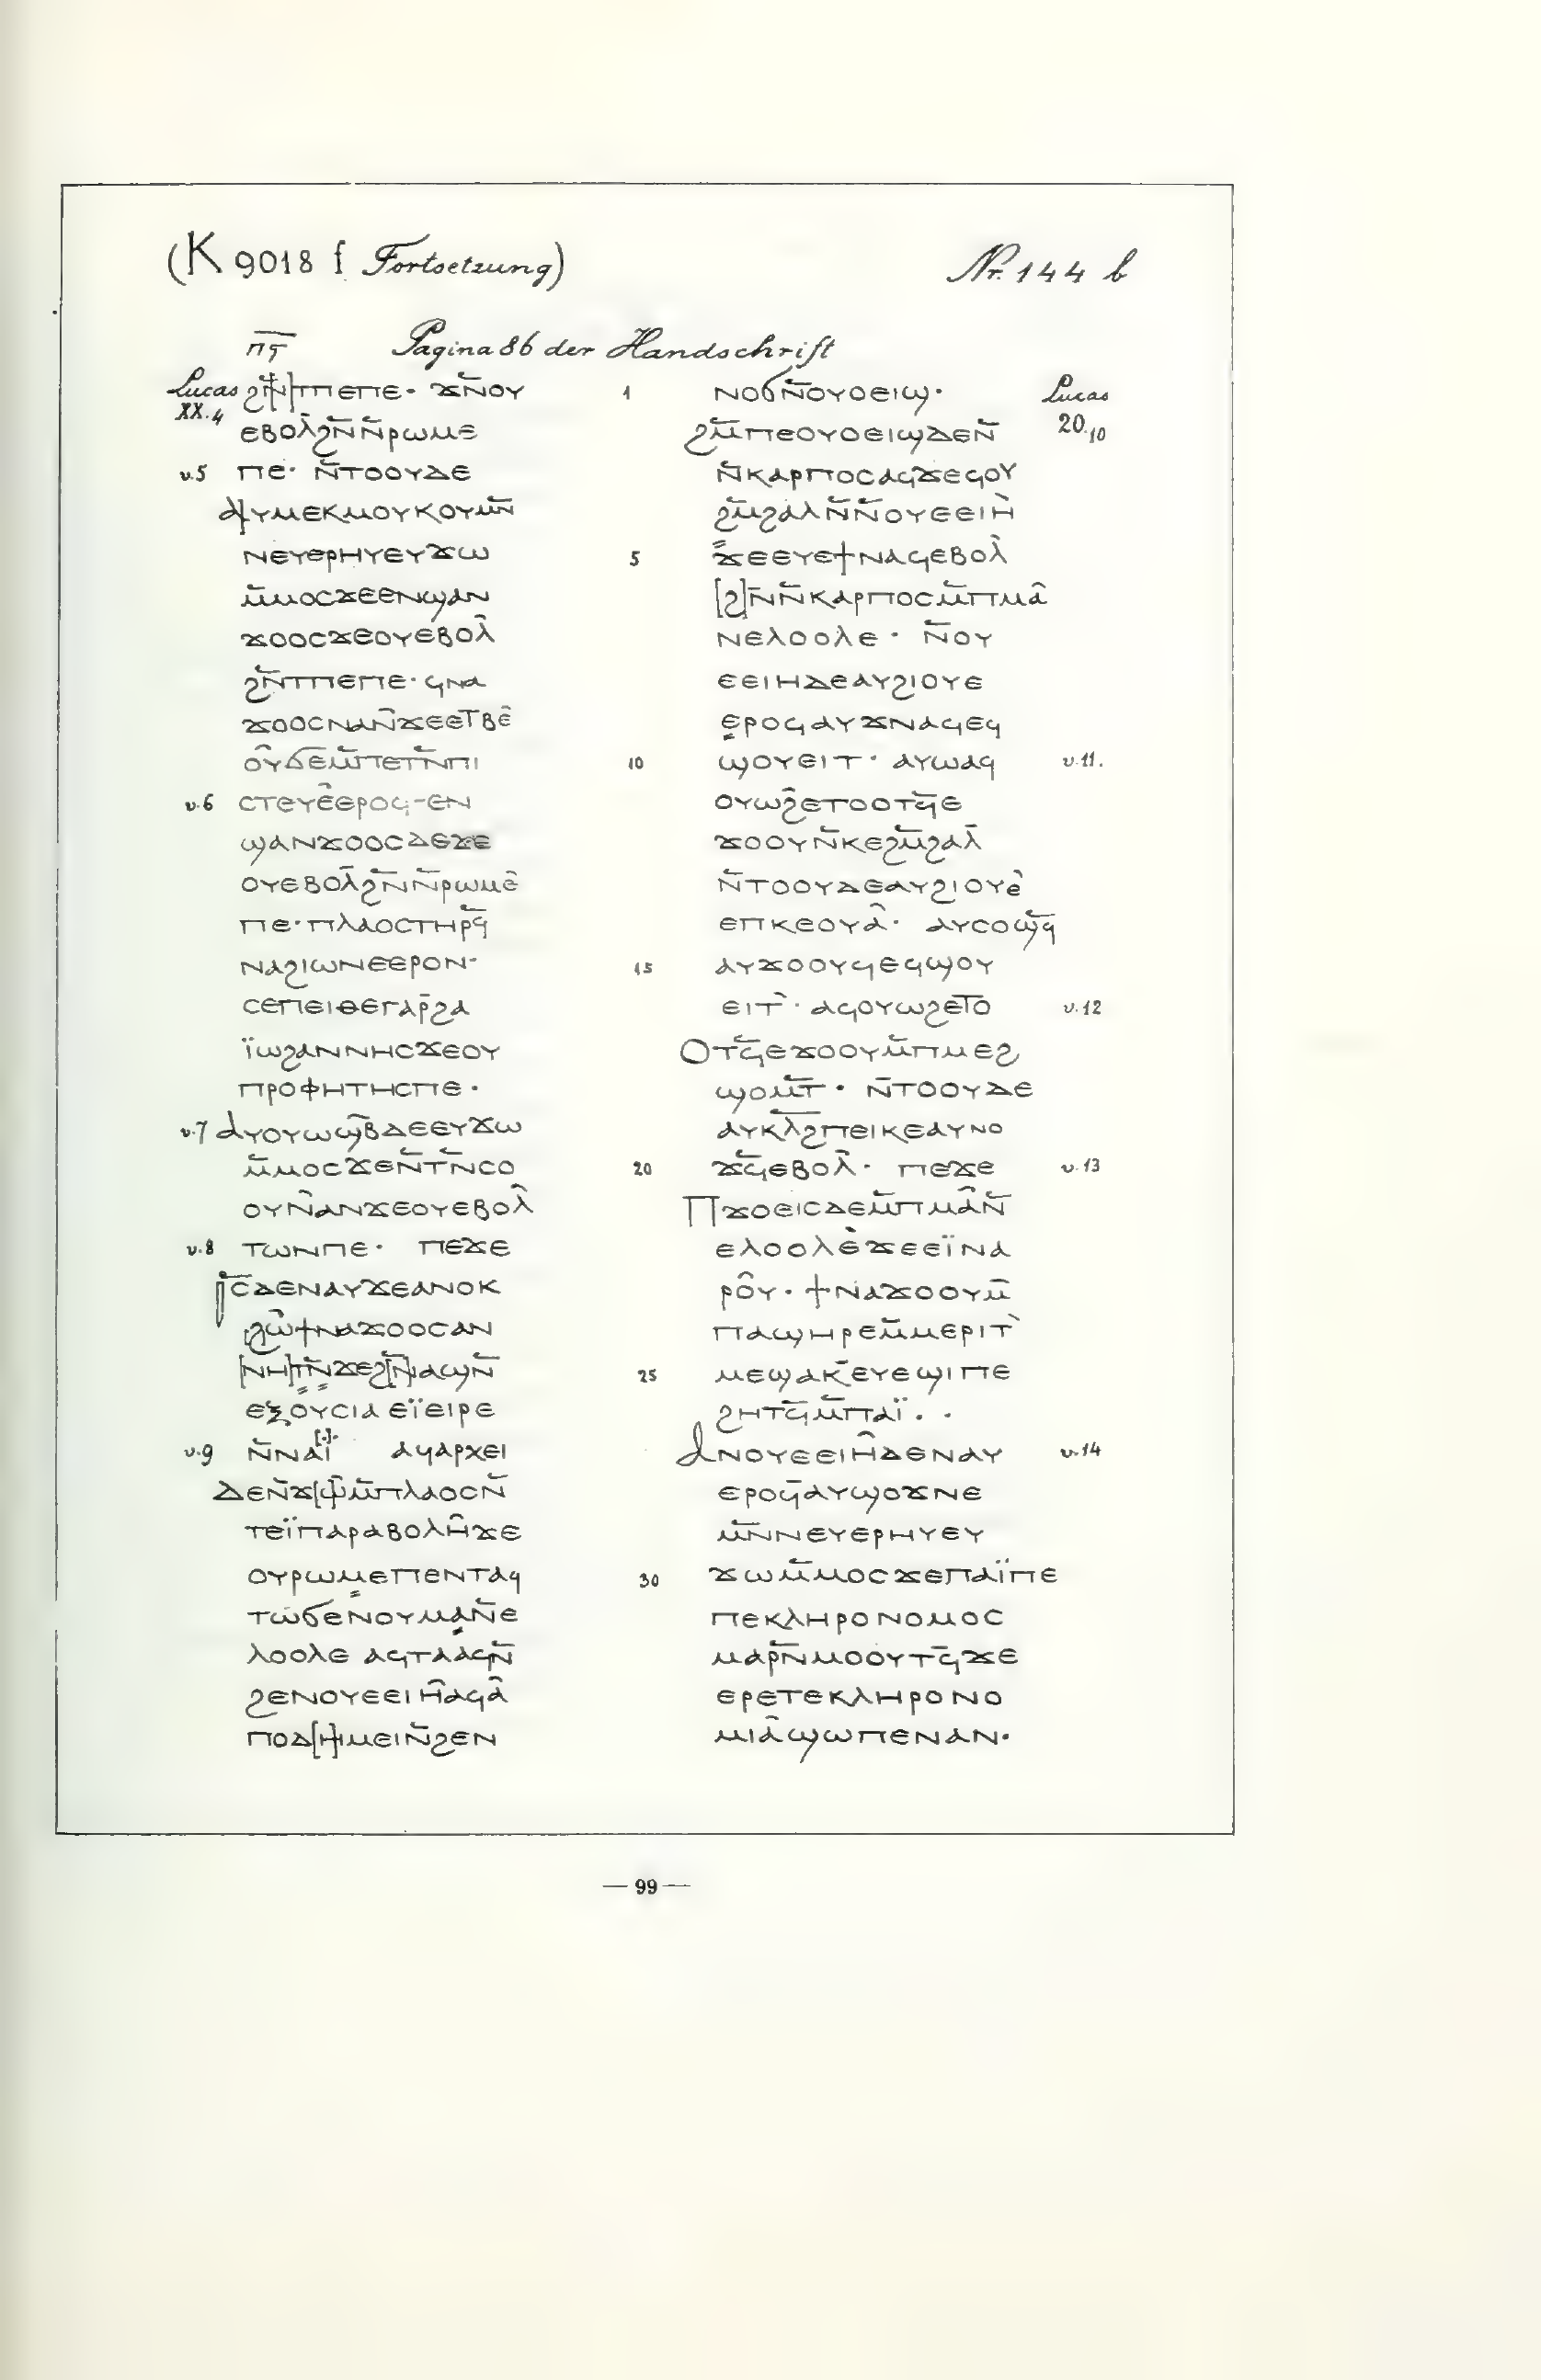 (K 9018 f Fortsetzung)
Nr. 144 b
ⲡ̅ϥ̅ Pagina 86 der Handschrift
Lucas XX.4 ϩⲛ̄[ⲧ]ⲡⲉⲡⲉ· ϫⲛ̄ⲟⲩ
ⲉⲃⲟⲗ̂ϩⲛ̄ⲛ̄ⲣⲱⲙⲉ
v.5 ⲡⲉ· ⲛ̄ⲧⲟⲟⲩⲇⲉ
ⲁⲩⲙⲉⲕⲙⲟⲩⲕⲟⲩⲙⲛ̄
ⲛⲉⲩⲉⲣⲏⲩⲉⲩϫⲱ
ⲙ̄ⲙⲟⲥϫⲉⲉⲛϣⲁⲛ
ϫⲟⲟⲥϫⲉⲟⲩⲉⲃⲟⲗ̂
ϩⲛ̄ⲧⲡⲉⲡⲉ· ϥⲛⲁ
ϫⲟⲟⲥⲛⲁⲛ̂ϫⲉⲉⲧⲃⲉ̂
ⲟⲩ̂ϭⲉⲙ̄ⲡⲉⲧⲛ̄ⲡⲓ
v.6 ⲥⲧⲉⲩⲉ̂ⲉⲣⲟϥ-ⲉⲛ
ϣⲁⲛϫⲟⲟⲥⲇⲉϫⲉ
ⲟⲩⲉⲃⲟⲗ̄ϩⲛ̄ⲛ̄ⲣⲱⲙⲉ̂
ⲡⲉ·ⲡⲗⲁⲟⲥⲧⲏⲣϥ̄
ⲛⲁϩⲓⲱⲛⲉⲉⲣⲟⲛ·
ⲥⲉⲡⲉⲓⲑⲉⲅⲁⲣ̄ϩⲁ
ⲓ̈ⲱϩⲁⲛⲛⲏⲥϫⲉⲟⲩ
ⲡⲣⲟⲫⲏⲧⲏⲥⲡⲉ·
v.7 ⲁⲩⲟⲩⲱϣ̄ⲃⲇⲉⲉⲩϫⲱ
ⲙ̄ⲙⲟⲥϫⲉⲛ̄ⲧⲛ̄ⲥⲟ
ⲟⲩⲛ̂ⲁⲛϫⲉⲟⲩⲉⲃⲟⲗ̂
v.8 ⲧⲱⲛⲡⲉ· ⲡⲉϫⲉ
ⲓ̄ⲥ̄ⲇⲉⲛⲁⲩϫⲉⲁⲛⲟⲕ
ϩⲱ̂ϯⲛⲁϫⲟⲟⲥⲁⲛ
[ⲛⲏ]ⲧⲛ̄ϫⲉϩ[ⲛ̄]ⲁϣⲛ̄
ⲉⲝⲟⲩⲥⲓⲁ ⲉⲓ̈ⲉⲓⲣⲉ
v.9 ⲛ̄ⲛⲁⲓ̈[·]· ⲁϥⲁⲣⲭⲉⲓ
ⲇⲉⲛ̄ϫ[ⲱ]ⲙ̄ⲡⲗⲁⲟⲥⲛ̄
ⲧⲉⲓ̈ⲡⲁⲣⲁⲃⲟⲗⲏ̂ϫⲉ
ⲟⲩⲣⲱⲙⲉⲡⲉⲛⲧⲁϥ
ⲧⲱϭⲉⲛⲟⲩⲙⲁⲛ̄ⲉ
ⲗⲟⲟⲗⲉ ⲁϥⲧⲁⲁϥⲛ̄
ϩⲉⲛⲟⲩⲉⲉⲓⲏ̂ⲁϥⲁ̂
ⲡⲟⲇ[ⲏ]ⲙⲉⲓⲛ̄ϩⲉⲛ
1 ⲛⲟϭⲛ̄ⲟⲩⲟⲉⲓϣ· Lucas
ϩⲙ̄ⲡⲉⲟⲩⲟⲉⲓϣⲇⲉⲛ̄ 20.10
ⲛ̄ⲕⲁⲣⲡⲟⲥⲁϥϫⲉϥⲟⲩ
ϩⲙ̄ϩⲁⲗⲛ̄ⲛ̄ⲟⲩⲉⲉⲓⲏ̀
5 ϫⲉⲉⲩⲉϯⲛⲁϥⲉⲃⲟⲗ̂
[ϩ]ⲛ̄ⲛ̄ⲕⲁⲣⲡⲟⲥⲙ̄ⲡⲙⲁ̂
ⲛⲉⲗⲟⲟⲗⲉ· ⲛ̄ⲟⲩ
ⲉⲉⲓⲏⲇⲉⲁⲩϩⲓⲟⲩⲉ
ⲉⲣⲟϥⲁⲩϫⲛⲁϥⲉϥ
10 ϣⲟⲩⲉⲓⲧ· ⲁⲩⲱⲁϥ v.11.
ⲟⲩⲱϩ̂ⲉⲧⲟⲟⲧϥ̄ⲉ
ϫⲟⲟⲩⲛ̄ⲕⲉϩⲙ̄ϩⲁⲗ̄
ⲛ̄ⲧⲟⲟⲩⲇⲉⲁⲩϩⲓⲟⲩⲉ̀
ⲉⲡⲕⲉⲟⲩⲁ̂· ⲁⲩⲥⲟϣϥ̄
15 ⲁⲩϫⲟⲟⲩϥⲉϥϣⲟⲩ
ⲉⲓⲧ̀· ⲁϥⲟⲩⲱϩⲉⲧ̄ⲟ v.12
ⲟⲧϥ̄ⲉϫⲟⲟⲩⲙ̄ⲡⲙⲉϩ
ϣⲟⲙ̄ⲧ· ⲛ̄ⲧⲟⲟⲩⲇⲉ
ⲁⲩⲕⲗ̄ϩⲡⲉⲓⲕⲉⲁⲩⲛⲟ
20 ϫϥ̄ⲉⲃⲟⲗ̂· ⲡⲉϫⲉ v.13
ⲡϫⲟⲉⲓⲥⲇⲉⲙ̄ⲡⲙⲁ̂ⲛ̄
ⲉⲗⲟⲟⲗⲉ̀ϫⲉⲉⲓ̈ⲛⲁ
ⲣⲟ̂ⲩ· ϯⲛⲁϫⲟⲟⲩⲙ̄
ⲡⲁϣⲏⲣⲉⲙ̄ⲙⲉⲣⲓⲧ̀
25 ⲙⲉϣⲁⲕ̄ⲉⲩⲉϣⲓⲡⲉ
ϩⲏⲧϥ̄ⲙ̄ⲡⲁⲓ̈· ·
ⲁⲛⲟⲩⲉⲉⲓⲏ̂ⲇⲉⲛⲁⲩ v.14
ⲉⲣⲟϥ̄ⲁⲩϣⲟϫⲛⲉ
ⲙⲛ̄ⲛⲉⲩⲉⲣⲏⲩⲉⲩ
30 ϫⲱⲙ̄ⲙⲟⲥϫⲉⲡⲁⲓ̈ⲡⲉ
ⲡⲉⲕⲗⲏⲣⲟⲛⲟⲙⲟⲥ
ⲙⲁⲣⲛ̄ⲙⲟⲟⲩⲧϥ̄ϫⲉ
ⲉⲣⲉⲧⲉⲕⲗⲏⲣⲟⲛⲟ
ⲙⲓⲁ̂ϣⲱⲡⲉⲛⲁⲛ·
— 99 —